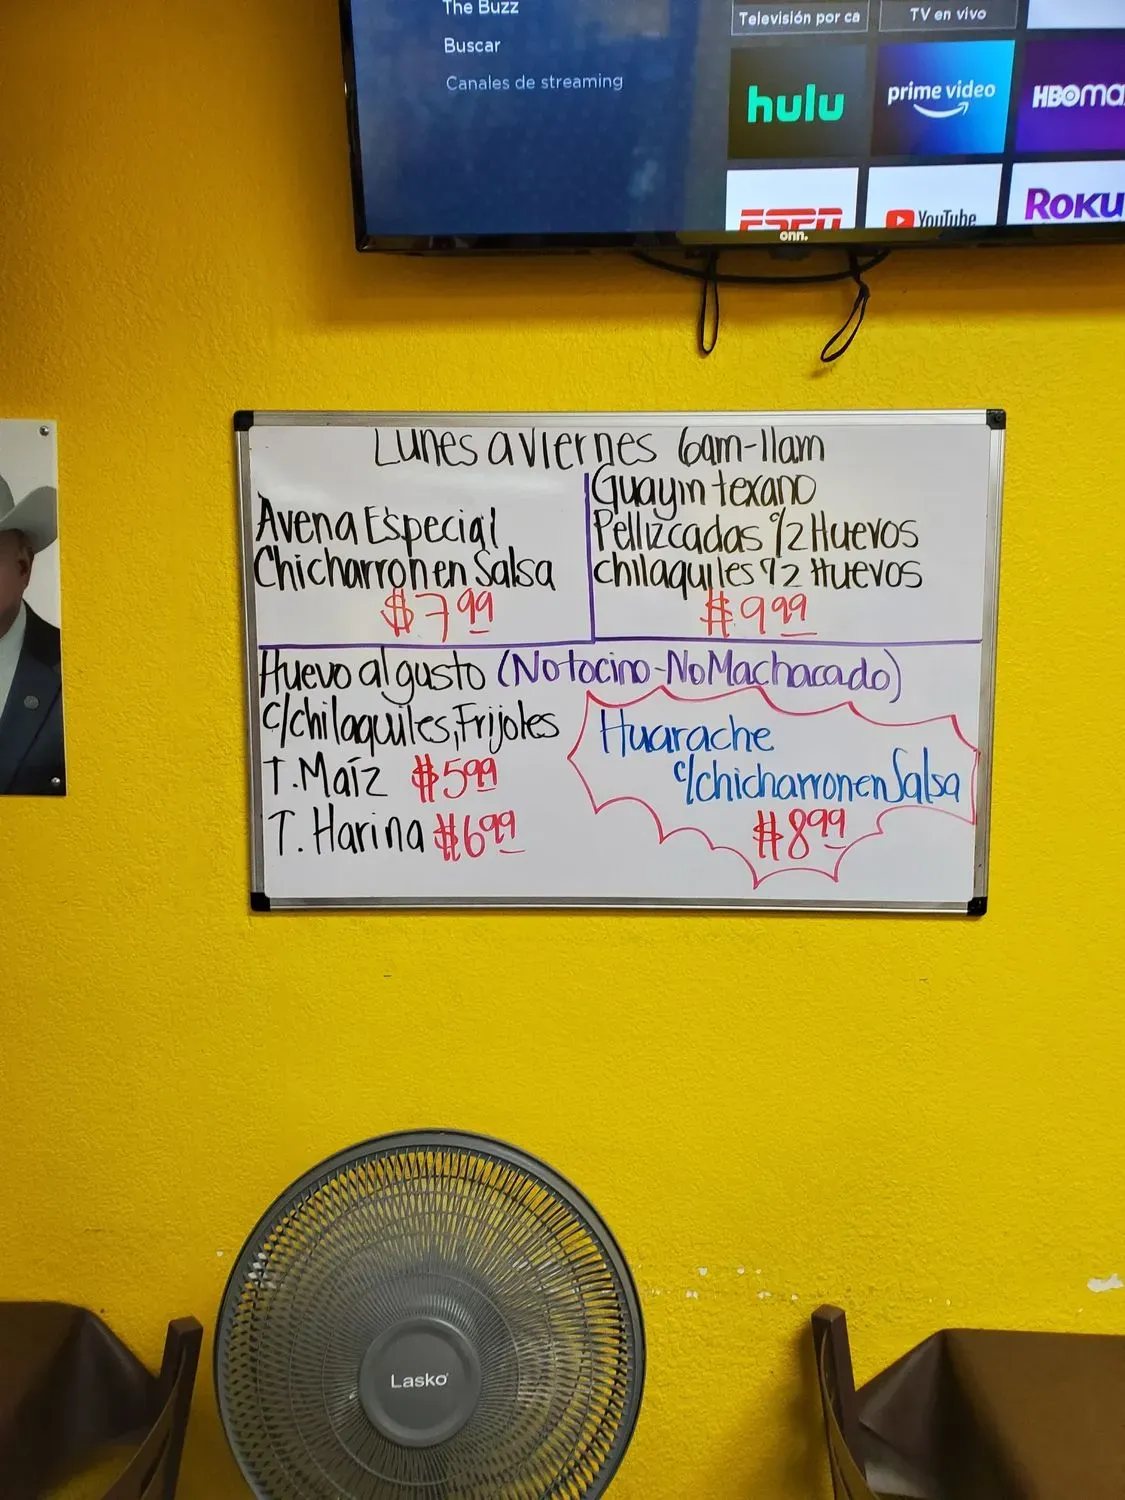 The Buzz
Buscar
Canales de streaming
Televisión por ca
TV en vivo
hulu
prime video
HBOma
ESPN
YouTube
Roku
onn.
Lunes a viernes 6am-11am
Avena Especial
Chicharron en Salsa
$7.99
Guayin texano
Pellizcadas c/2 Huevos
chilaquiles c/2 Huevos
$9.99
Huevo al gusto (No tocino-No Machacado)
c/chilaquiles, Frijoles
T. Maíz $5.99
T. Harina $6.99
Huarache
c/chicharron en Salsa
$8.99
Lasko